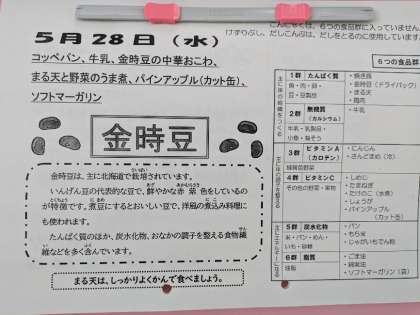 けずりぶし、だしこんぶは、だしをとるのに使用しています。
5月28日（水）
コッペパン、牛乳、金時豆の中華おこわ、
まる天と野菜のうま煮、パインアップル（カット缶）、
ソフトマーガリン
金時豆
金時豆は、主に北海道で栽培されています。
いんげん豆の代表的な豆で、鮮やかな赤紫色をしているの
が特徴です。煮豆にするとおいしい豆で、洋風の煮込み料理に
も使われます。
たんぱく質のほか、炭水化物、おなかの調子を整える食物繊
維などを多く含んでいます。
まる天は、しっかりよくかんで食べましょう。
6つの食品群
1群 たんぱく質
魚・肉・卵・
豆・豆製品
・焼き豚
・金時豆（ドライパック）
・まる天
・鶏肉
2群 無機質
（カルシウム）
牛乳・乳製品・
小魚・海そう
・牛乳
3群 ビタミンA
（カロテン）
緑黄色野菜
・にんじん
・さんどまめ（冷）
4群 ビタミンC
その他の野菜・果物
・しめじ
・たまねぎ
・たけのこ（水煮）
・しょうが
・パインアップル
（カット缶）
5群 炭水化物
米・パン・めん・
いも・砂糖
・パン
・もち米
・じゃがいもでん粉
6群 脂質
油脂
・ごま油
・綿実油
・ソフトマーガリン（袋）